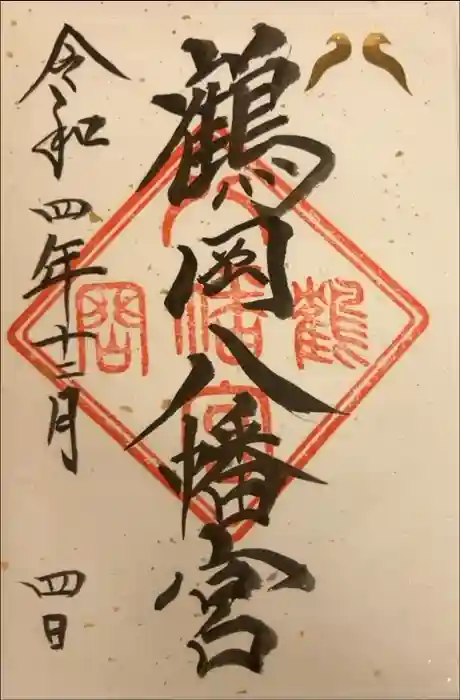 鶴岡八幡宮
令和四年十二月 四日
鶴
八幡宮
岡